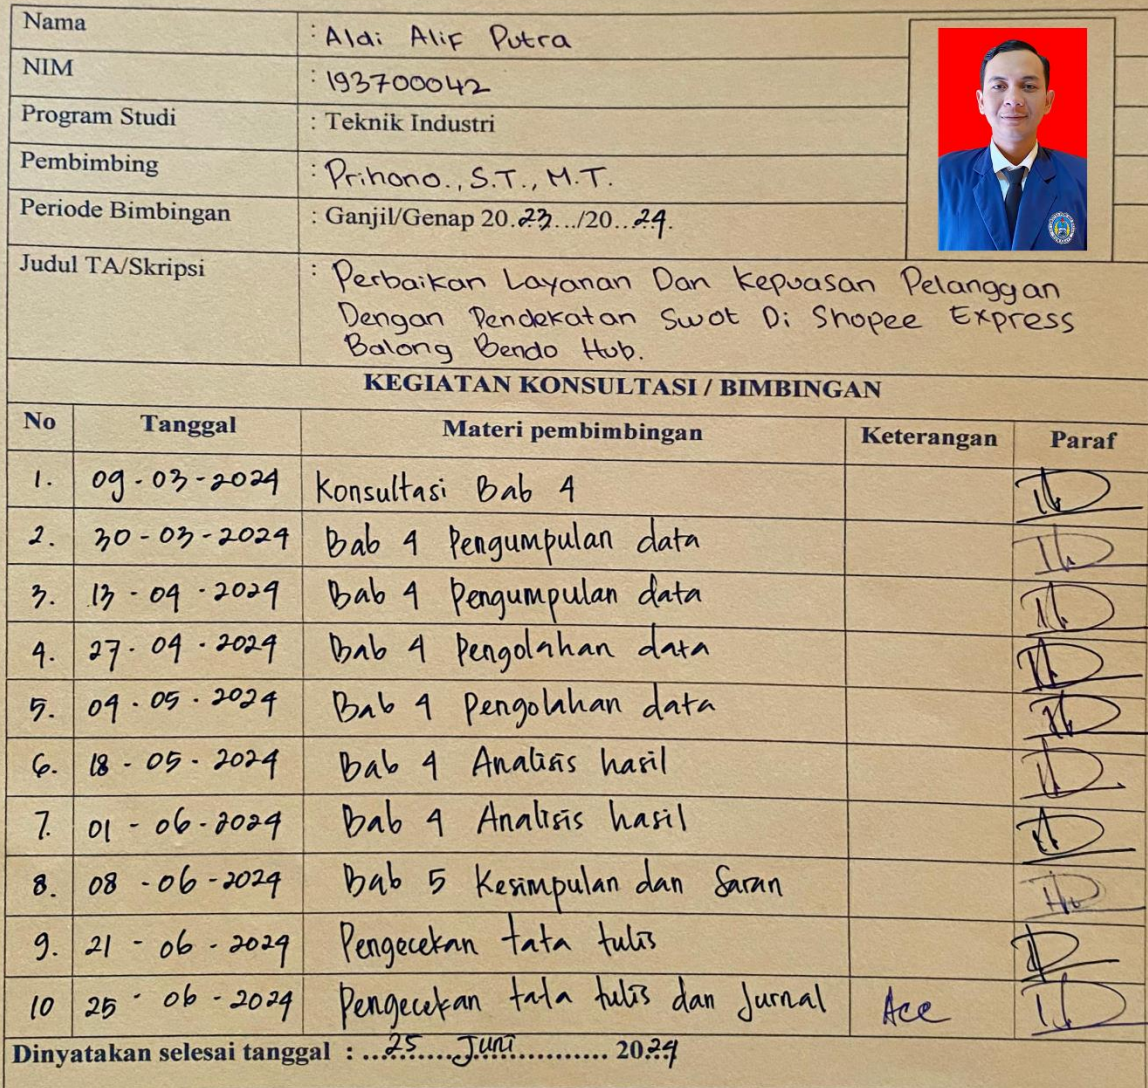 Nama : Aldi Alif Putra
NIM : 193700042
Program Studi : Teknik Industri
Pembimbing : Prihono., S.T., M.T.
Periode Bimbingan : Ganjil/Genap 20.23.../20...24.
Judul TA/Skripsi : Perbaikan Layanan Dan Kepuasan Pelanggan
Dengan Pendekatan Swot Di Shopee Express
Balong Bendo Hub.
KEGIATAN KONSULTASI / BIMBINGAN
No Tanggal Materi pembimbingan Keterangan Paraf
1. 09-03-2024 Konsultasi Bab 4
2. 30-03-2024 Bab 4 Pengumpulan data
3. 13-04-2024 Bab 4 Pengumpulan data
4. 27-04-2024 Bab 4 Pengolahan data
5. 04-05-2024 Bab 4 Pengolahan data
6. 18-05-2024 Bab 4 Analisis hasil
7. 01-06-2024 Bab 4 Analisis hasil
8. 08-06-2024 Bab 5 Kesimpulan dan Saran
9. 21-06-2024 Pengecekan tata tulis
10 25-06-2024 Pengecekan tata tulis dan Jurnal Acc
Dinyatakan selesai tanggal : ...25.....Juni............ 2024